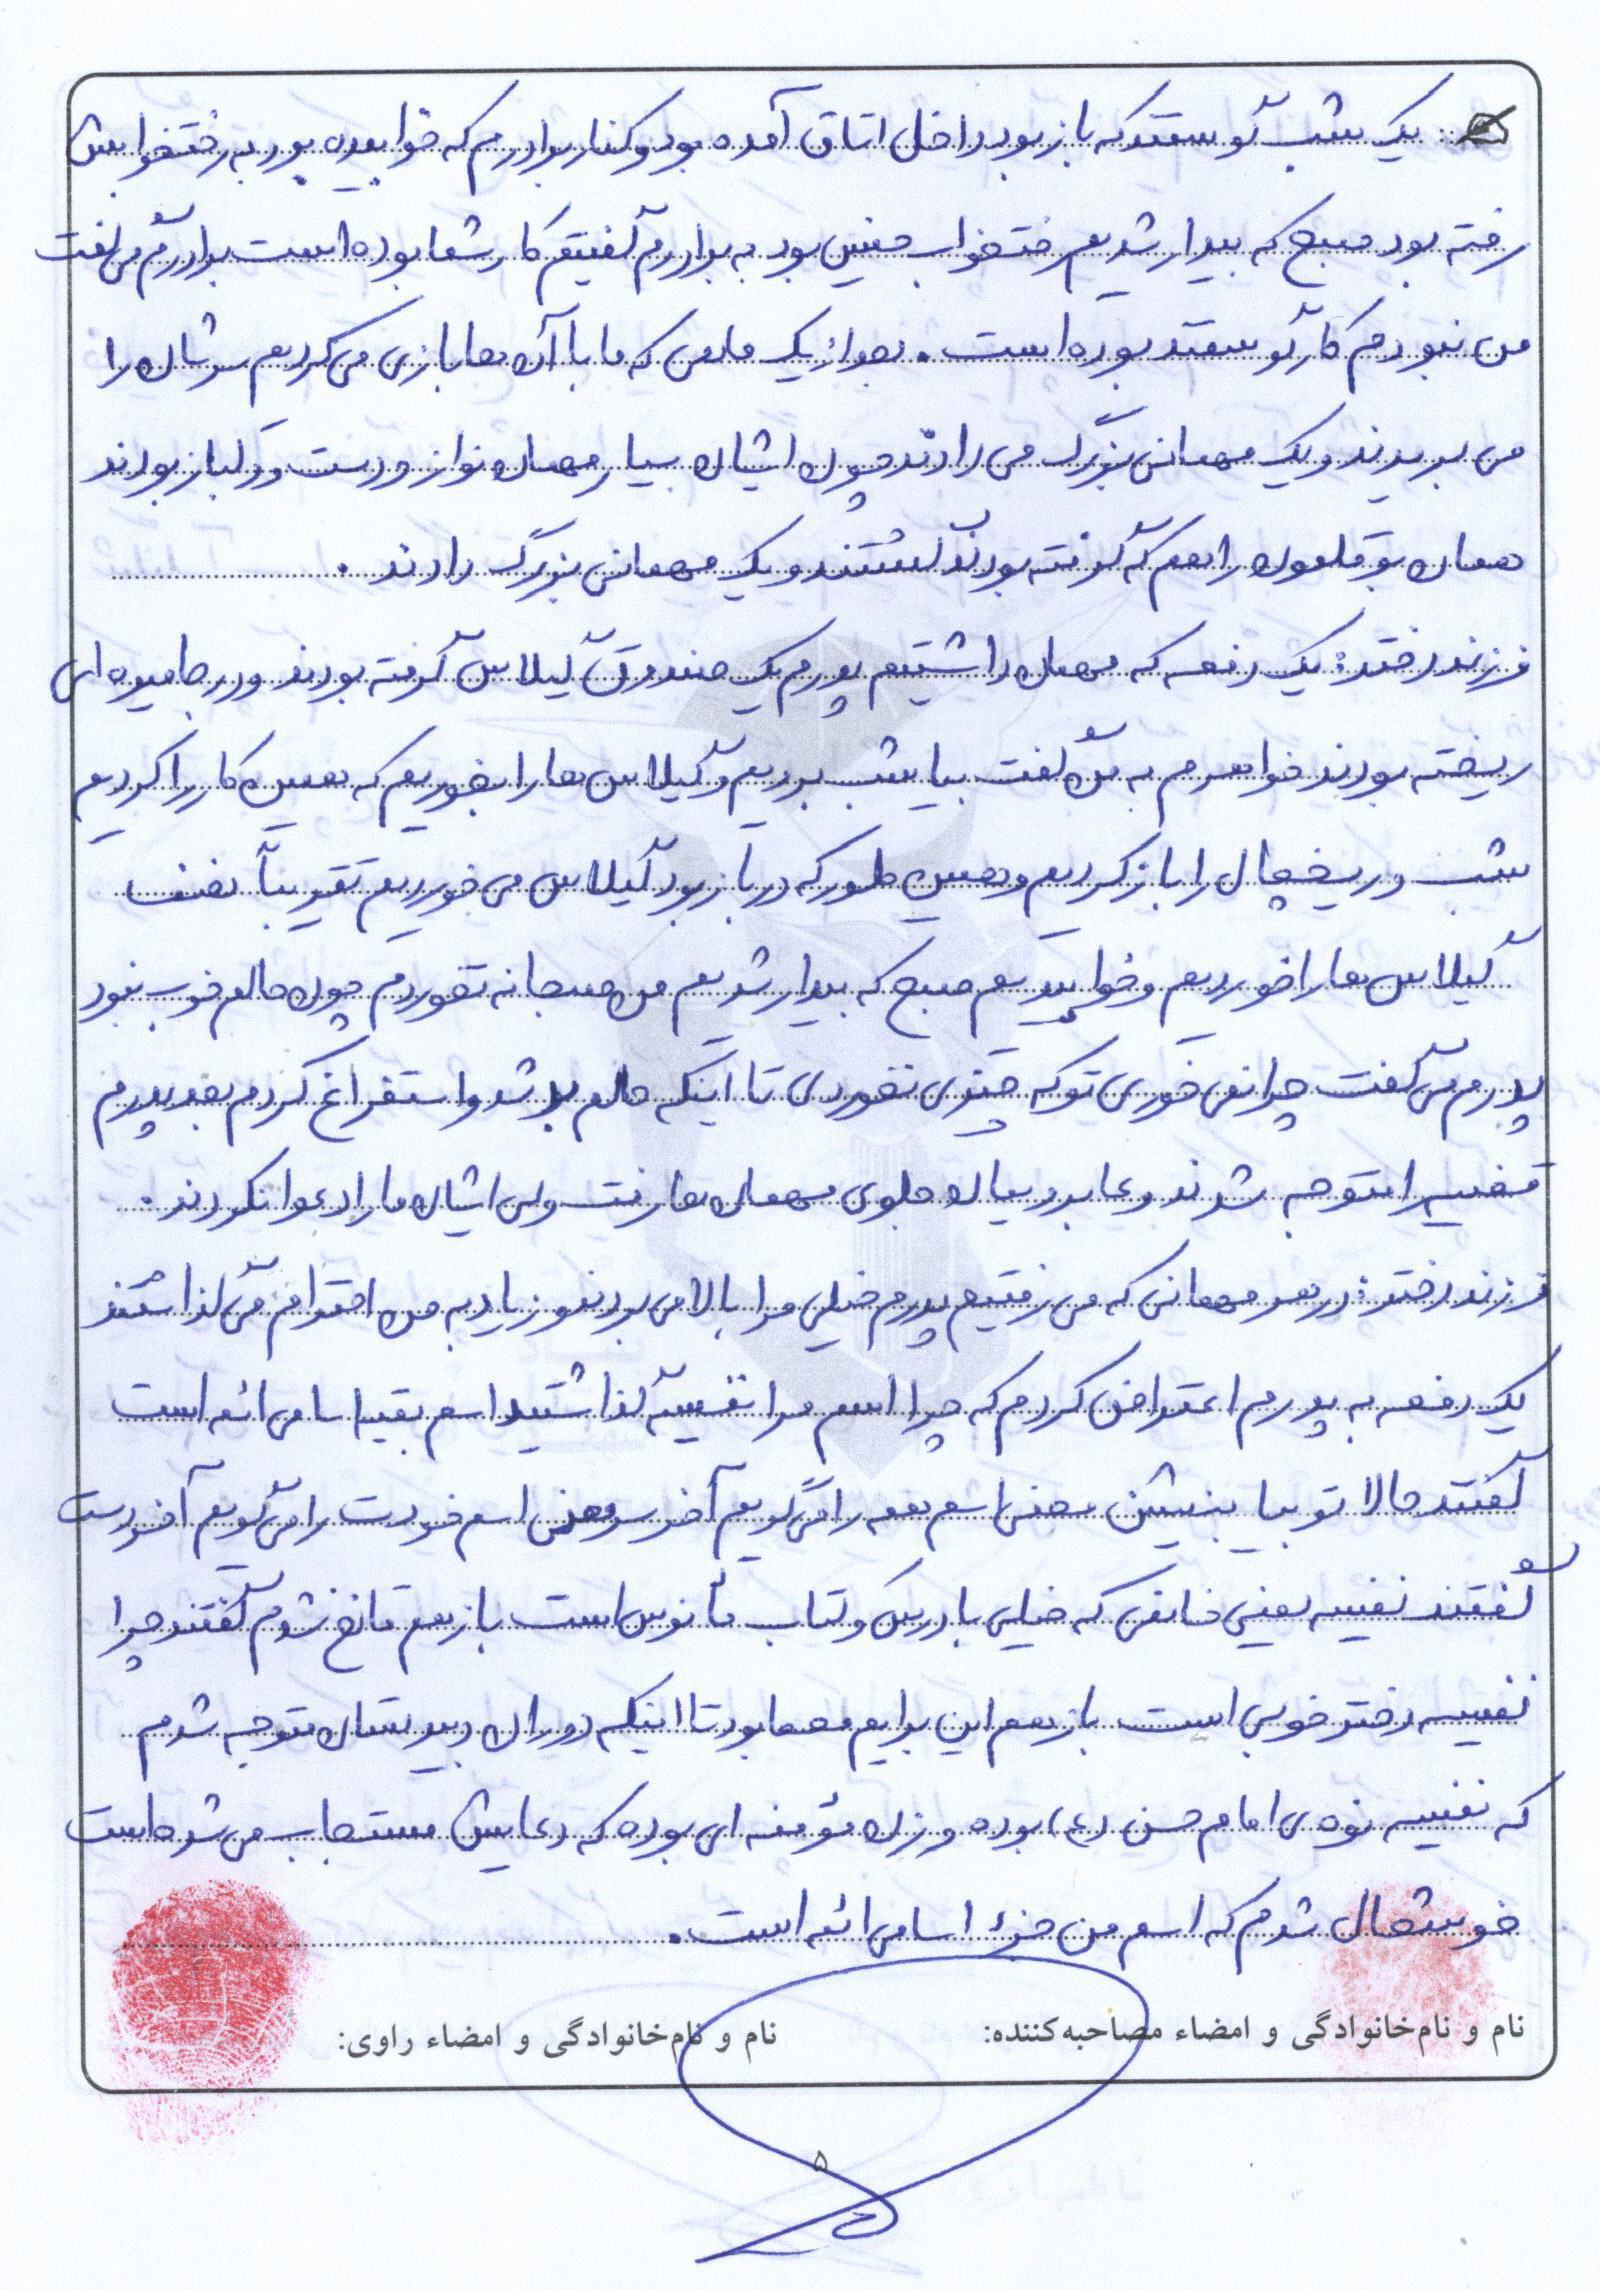 یک شب گوسفند که باز بود داخل اتاق آمده بود و کنار برادرم که خوابیده بود به رختخوابش
رفته بود صبح که بیدار شدیم رختخواب خیس بود به برادرم گفتیم کار شما بوده است برادرم می گفت
من نبودم کار گوسفند بوده است. بعد از یک ماهی که ما با آن ها بازی می کردیم سرشان را
می بریدند و یک مهمانی بزرگ می دادند چون ایشان بسیار مهمان نواز و دست و دلباز بودند
همان بوقلمون را هم که گرفته بودند کشتند و یک مهمانی بزرگ دادند.
فرزند دختر: یک دفعه که مهمان داشتیم پدرم یک صندوق گیلاس گرفته بودند و در جا میوه ای
ریخته بودند خواهرم به من گفت بیا شب برویم و گیلاس ها را بخوریم که همین کار را کردیم
شب در یخچال را باز کردیم و همین طور که در باز بود گیلاس می خوردیم تقریباً نصف
گیلاس ها را خوردیم و خوابیدیم صبح که بیدار شدیم من صبحانه نخوردم چون حالم خوب نبود
پدرم می گفت چرا نمی خوری تو که چیزی نخوردی تا اینکه حالم بد شد و استفراغ کردم بعد پدرم
قضیه را متوجه شدند و ما برویمان جلوی مهمان ها رفت ولی ایشان ما را دعوا نکردند.
فرزند دختر: در هر مهمانی که می رفتیم پدرم خیلی مرا بالا می بردند و زیاد به من احترام می گذاشتند
یک دفعه به پدرم اعتراض کردم که چرا اسم مرا نفیسه گذاشتید اسم بقیه اسامی ائمه است
گفتند حالا تو بیا بنشین معنی اسم همه را می گویم آخر سر معنی اسم خودت را می گویم آخر دست
گفتند نفیسه یعنی خانمی که خیلی با درس و کتاب مأنوس است باز هم قانع نشدم گفتند چرا
نفیسه دختر خوبی است باز هم این برایم معما بود تا اینکه دوران دبیرستان متوجه شدم
که نفیسه نوه ی امام حسن (ع) بوده و زن مؤمنه ای بوده که دعایش مستجاب می شده است
خوشحال شدم که اسم من جزء اسامی ائمه است.
نام و نام‌خانوادگی و امضاء مصاحبه‌کننده: نام و نام‌خانوادگی و امضاء راوی:
۵